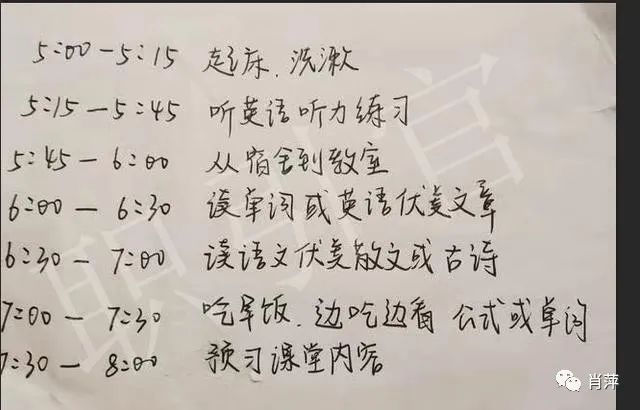 5:00-5:15 起床、洗漱
5:15-5:45 听英语听力练习
5:45-6:00 从宿舍到教室
6:00-6:30 读单词或英语优美文章
6:30-7:00 读语文优美散文或古诗
7:00-7:30 吃早饭、边吃边看公式或单词
7:30-8:00 预习课堂内容
肖萍